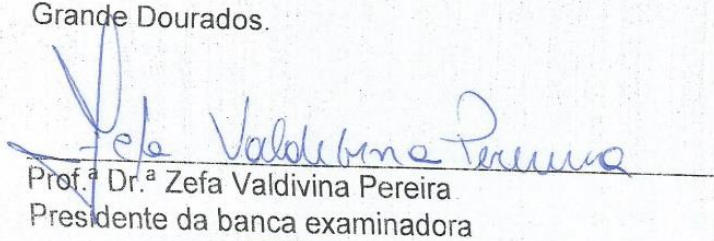 Grande Dourados.
Zefa Valdivina Pereira
Prof.ª Dr.ª Zefa Valdivina Pereira
Presidente da banca examinadora